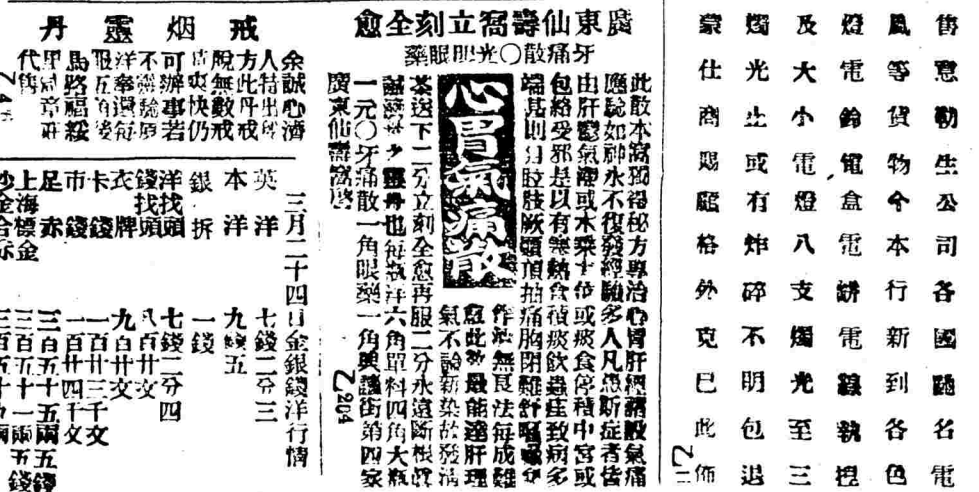 售寬勒生公司各國馳名電
風等貨物今本行新到各色
燈電鈴電盒電餅電線執燈
及大小電燈八支燭光至三
燭光止或有炸碎不明包退
蒙仕商賜顧格外克已此佈
廣東仙壽窩立刻全愈
牙痛散〇光明眼藥
心胃氣痛散
此散本窩獨得秘方專治心胃肝經諸般氣痛
應驗如神永不復發經驗多人凡患斯症者皆
由肝鬱氣滯或木乘土位或痰食停積中宮或
包絡受邪是以有寒熱食積痰飲蟲疰致病多
端甚則肢厥頭頂抽痛胸閉難舒
作法無良法每成難
愈此散最能達肝理
氣不論新染故發清
茶送下二分立刻全愈再服二分永遠斷根
靈丹也每瓶洋六角單料四角大瓶
一元〇牙痛散一角眼藥一角興讓街第四家
廣東仙壽窩啓
戒烟靈丹
余誠心濟
人特出
方此丹戒
脫無數戒
爽快仍
可辦事若
不靈驗原
洋奉還每
服五角後
馬路福綏
里
代售
三月二十四日金銀錢洋行情
英洋 七錢二分三
本洋 九錢五
銀拆 一錢
洋找頭 七錢二分四
錢找頭 八百廿文
衣牌 九百廿文
卡錢 一百廿三千文
市錢 一百廿四千文
足赤 三百五十五兩五錢
上海標金 三百五十一兩五錢